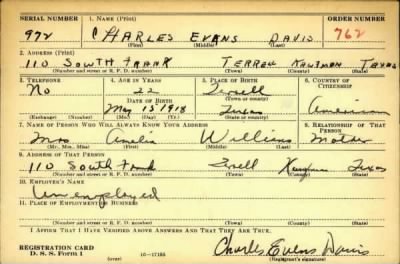 SERIAL NUMBER 1. NAME (Print) ORDER NUMBER
972 CHARLES EVANS DAVIS 762
(First) (Middle) (Last)
2. ADDRESS (Print)
110 SOUTH FRANK TERRELL KAUFMAN TEXAS
(Number and street or R. F. D. number) (Town) (County) (State)
3. TELEPHONE 4. AGE IN YEARS 5. PLACE OF BIRTH 6. COUNTRY OF CITIZENSHIP
No 22 Terrell
DATE OF BIRTH (Town or county)
May 15 1918 Texas American
(Exchange) (Number) (Mo.) (Day) (Yr.) (State or country)
7. NAME OF PERSON WHO WILL ALWAYS KNOW YOUR ADDRESS 8. RELATIONSHIP OF THAT PERSON
Mrs Amelia Williams Mother
(Mr., Mrs., Miss) (First) (Middle) (Last)
9. ADDRESS OF THAT PERSON
110 South Frank Terrell Kaufman Texas
(Number and street or R. F. D. number) (Town) (County) (State)
10. EMPLOYER'S NAME
Unemployed
11. PLACE OF EMPLOYMENT OR BUSINESS
(Number and street or R. F. D. number) (Town) (County) (State)
I AFFIRM THAT I HAVE VERIFIED ABOVE ANSWERS AND THAT THEY ARE TRUE.
REGISTRATION CARD Charles Evens Davis
D. S. S. Form 1 (over) 16-17105 (Registrant's signature)